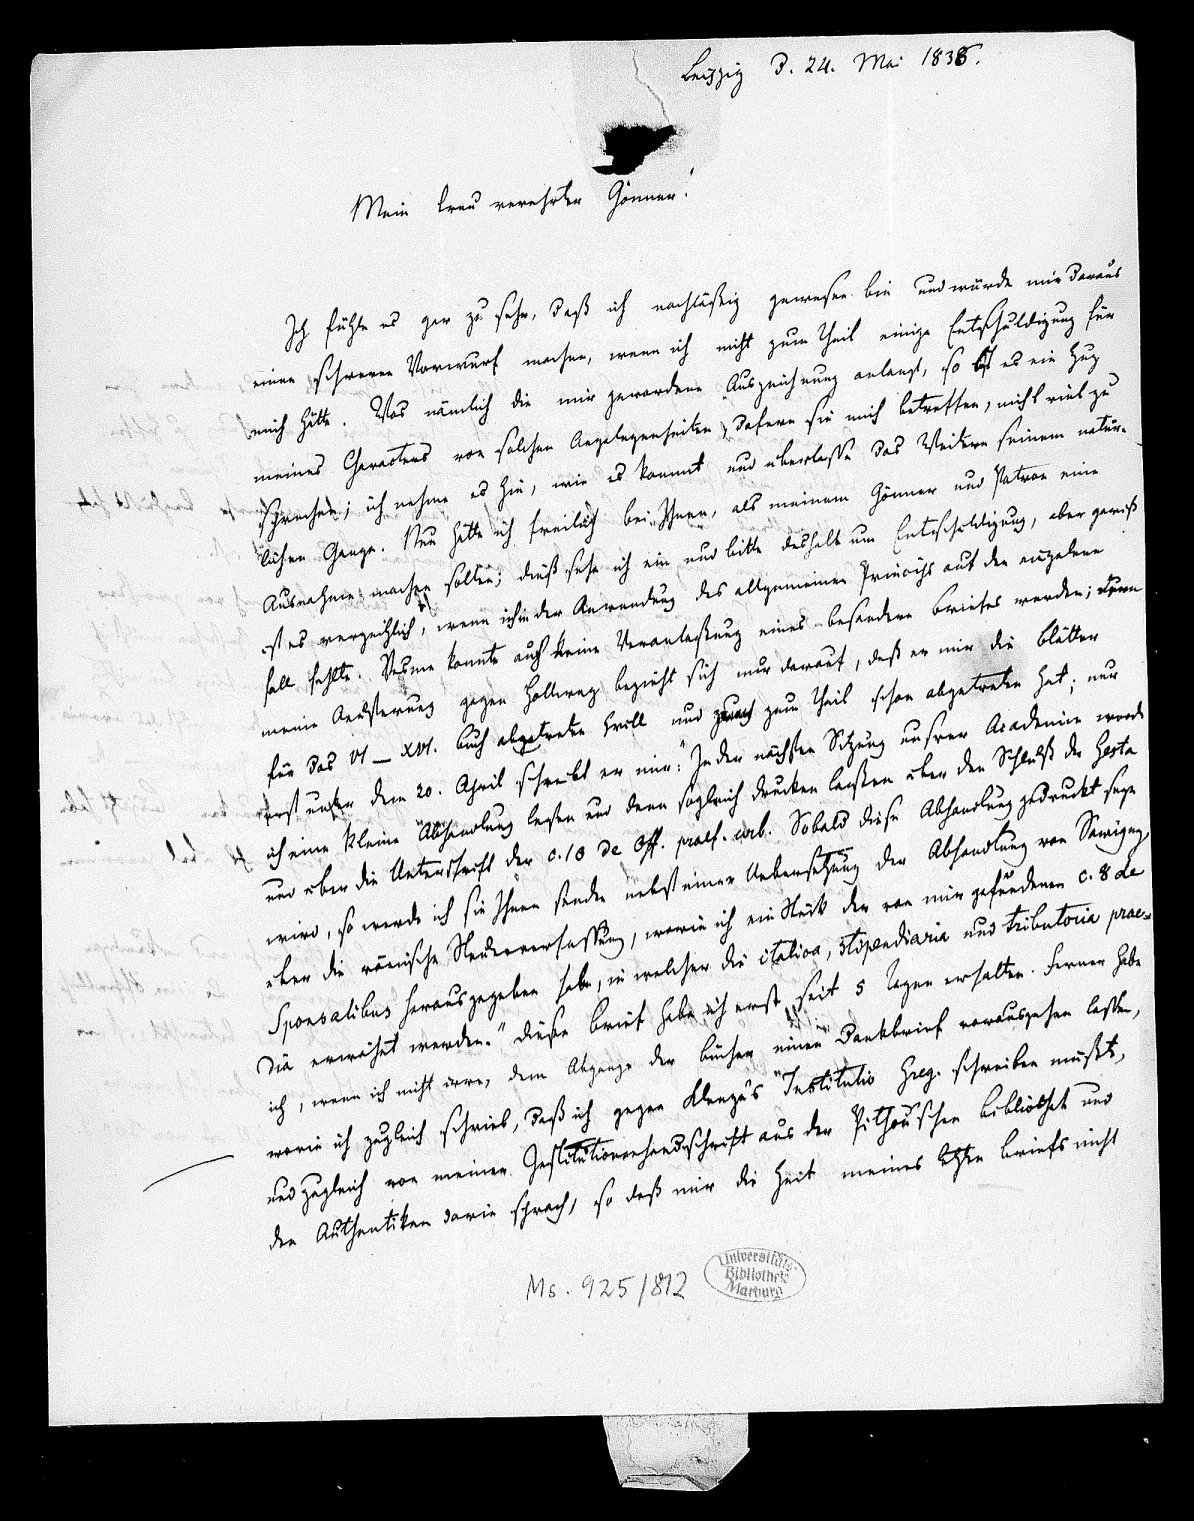 Leipzig d. 24. Mai 1838.
Mein treu verehrter Gönner!
Ich fühle es gar zu sehr, daß ich nachläßig gewesen bin und würde mir daraus
einen schweren Vorwurf machen, wenn ich nicht zum Theil einige Entschuldigung für
mich hätte. Was nämlich die mir gewordene Auszeichnung anlangt, so ist es ein Zug
meines Characters von solchen Angelegenheiten, dafern sie mich betreffen, nicht viel zu
sprechen; ich nehme es hin, wie es kommt und überlasse das Weitere seinem natür-
lichen Gange. Nun hätte ich freilich bei Ihnen, als meinem Gönner und Patron eine
Ausnahme machen sollen; dieß sehe ich ein und bitte deshalb um Entschuldigung, aber gewiß
ist es verzeihlich, wenn ich in der Anwendung des allgemeinen Princips auf den einzelnen
Fall fehlte. Vesme konnte auch keine Veranlaßung eines besondern Briefes werden; denn
meine Aeußerung gegen Hollweg bezieht sich nur darauf, daß er mir die Blätter
für das VI – XVI. Buch abgetreten will und zum Theil schon abgetreten hat; nur
erst unter dem 20. April schreibt er mir: "In der nächsten Sitzung unsrer Academie werde
ich eine kleine Abhandlung lesen und dann sogleich drucken laßen über den Schluß der Gesta
und über die Unterschrift der c. 10 de Off. praef. urb. Sobald diese Abhandlung gedruckt seyn
wird, so werde ich sie Ihnen senden nebst einer Uebersetzung der Abhandlung von Savigny,
über die römische Steuerverfassung, worin ich ein Stück der von mir gefundenen c. 8 de
Sponsalibus herausgegeben habe, in welcher die italica, stipendiaria und tributoria prae-
dia erwähnt werden." Diesen Brief habe ich erst seit 5 Tagen erhalten. Ferner habe
ich, wenn ich nicht irre, dem Abgange der Bücher einen Dankbrief vorausgehen lassen,
worin ich zugleich schrieb, daß ich gegen Klenze's "Institutio Greg. schreiben müßte,
und zugleich von meiner Institutionenhandschrift aus der Pithou'schen Bibliothek und
den Authentiken darin sprach, so daß mir die Zeit meines letzten Briefs nicht
Ms. 925/812
Universitäts-
Bibliothek
Marburg